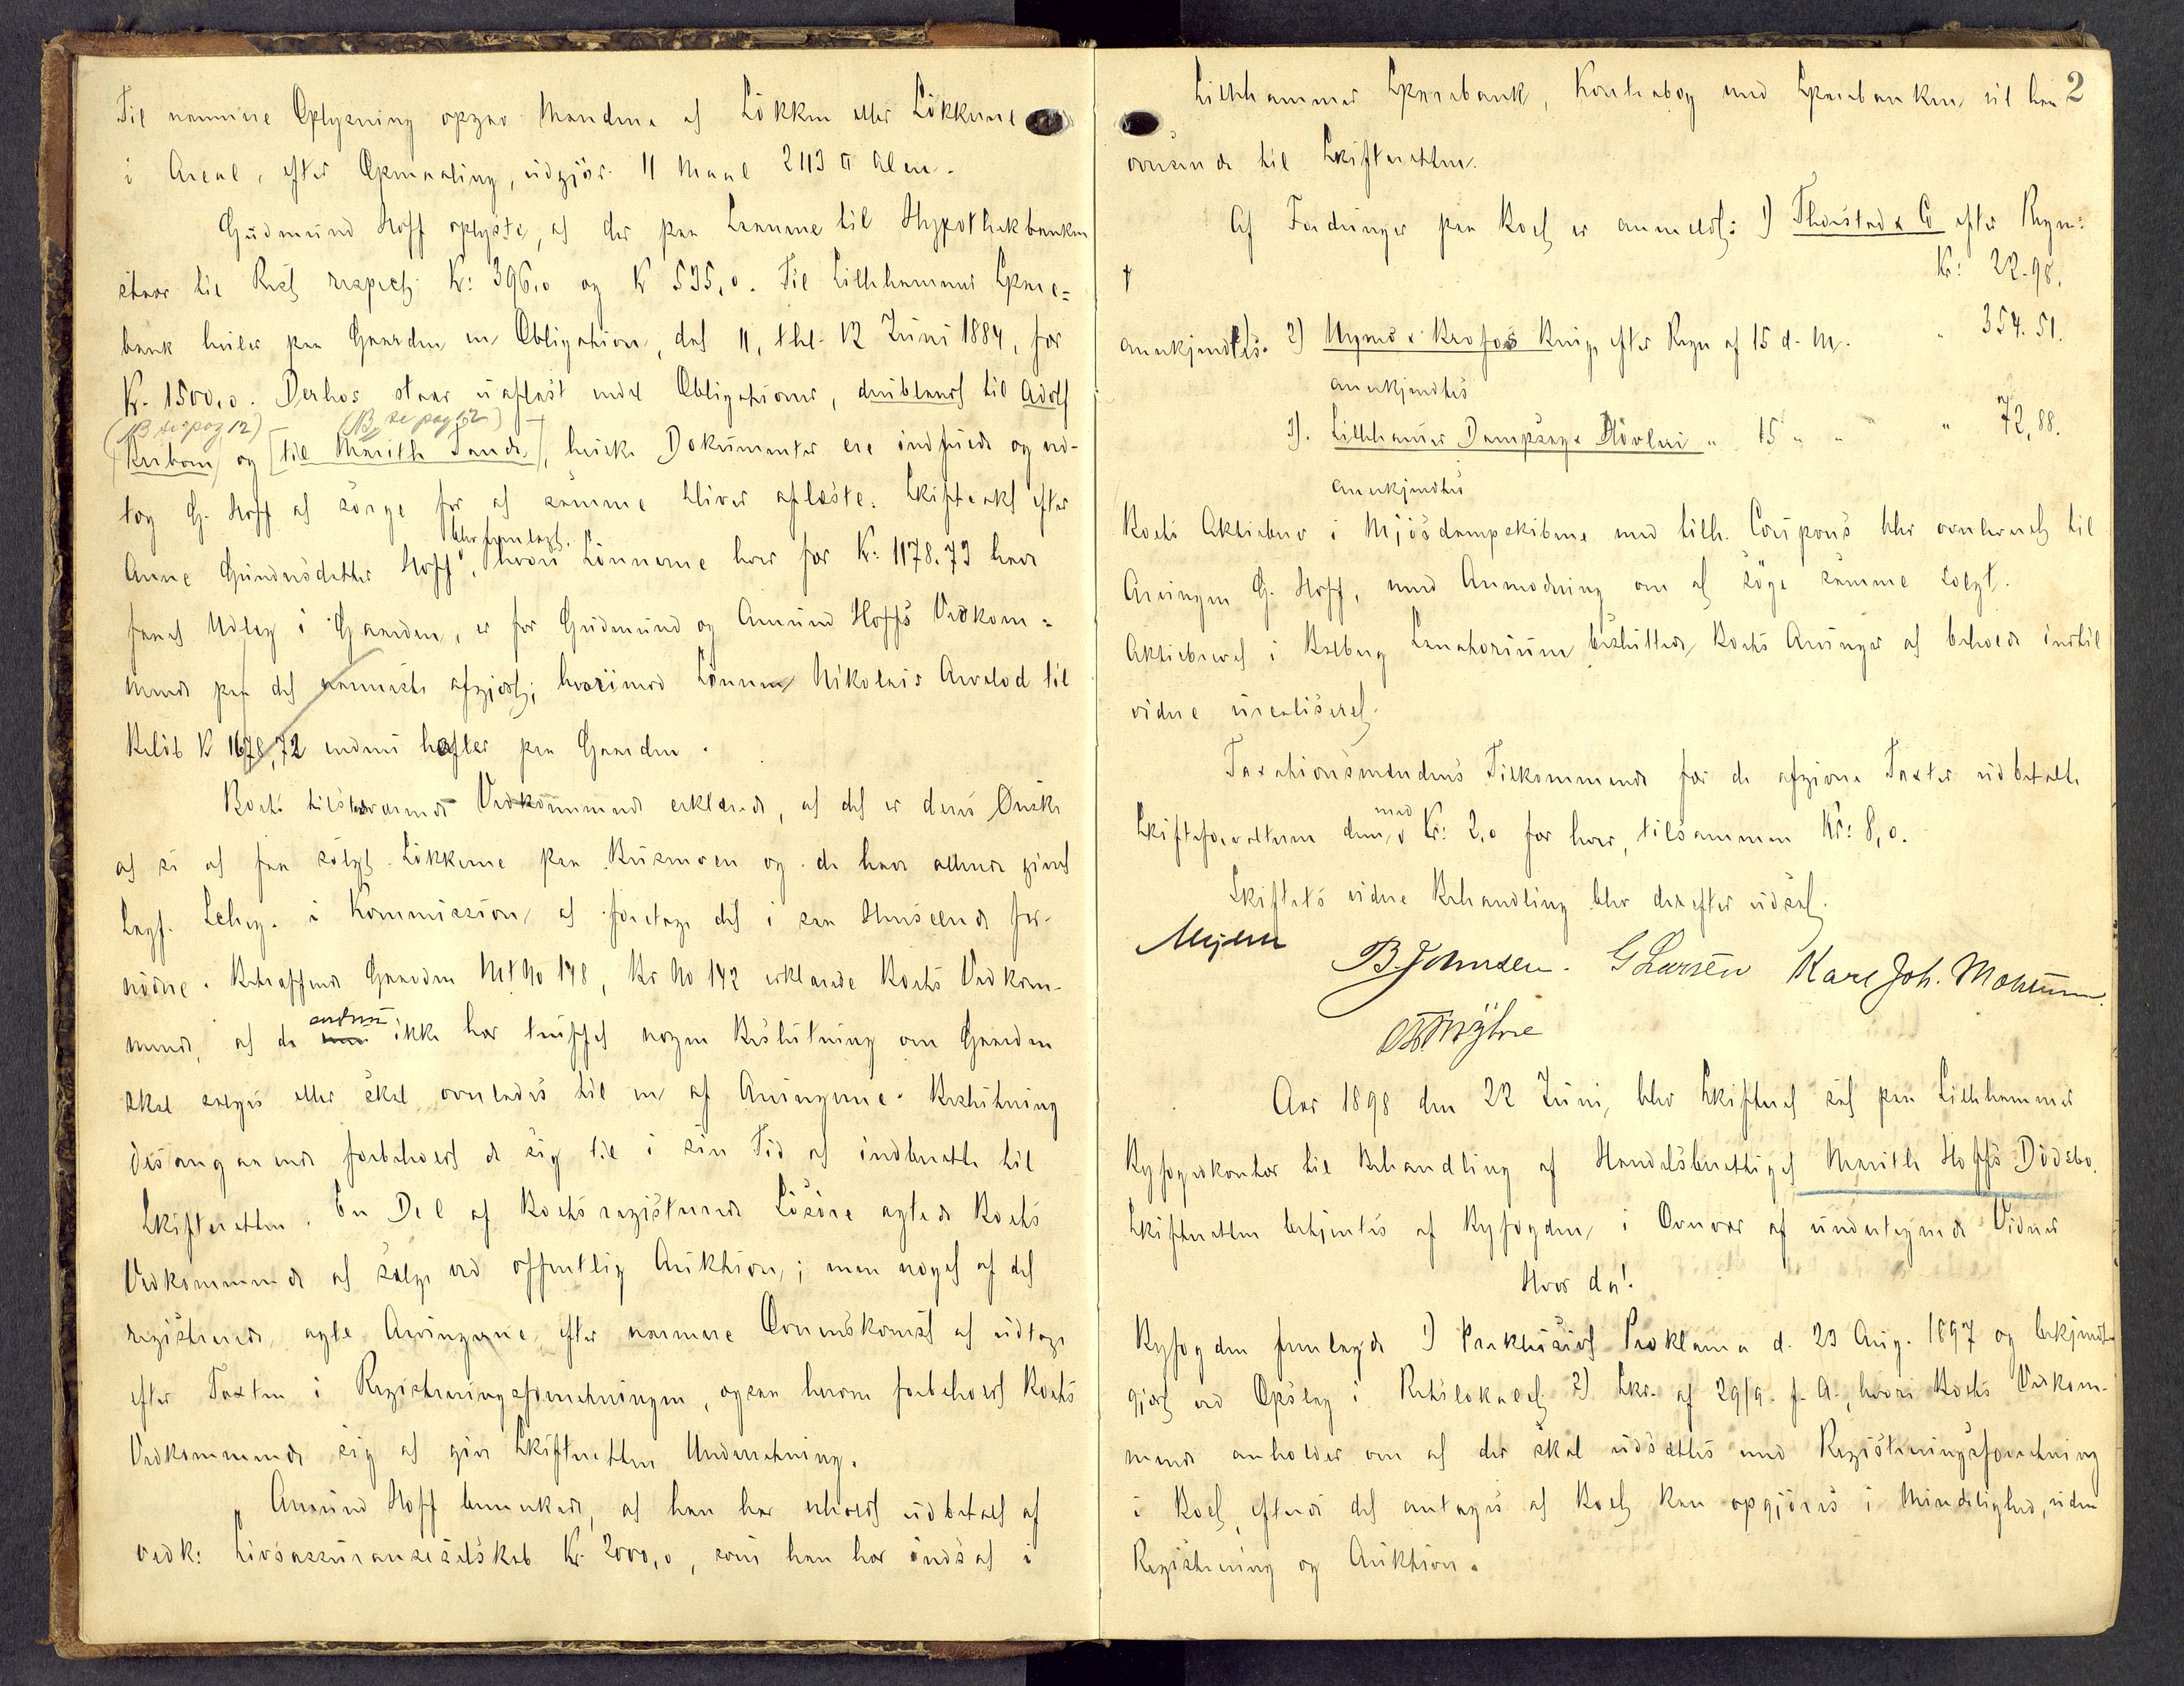 Til nærmere Oplysning opgav Mændene at Løkken eller Løkkerne
i Areal, efter Opmaaling, udgjør 11 Maal 2113 □ Alen.
Gudmund Hoff oplyste, at der paa Laanene til Hypothekbanken
staar til Rest respect. Kr: 396,0 og Kr 535,0. Til Lillehammer Spare=
bank hviler paa Gaarden en Obligation, dat 11, thl. 12 Juni 1884, for
Kr. 1500,0. Derhos staar uaflæst endel Obligationer, deriblandt til Adolf
(NB se pag 12) (NB se pag 12)
Kerbom og [til Marith Sande], hvilke Dokumenter ere indfriede og ved-
tog G. Hoff at sørge for at samme bliver aflæste. Skifteakt efter
blev fremlagt.
Anne Gundersdatter Hoff, hvori Sønnerne hver for Kr: 1178.73 have
faaet Udlæg i Gaarden, er for Gudmund og Amund Hoffs Vedkom=
mende paa det nærmeste afgjort; hvorimod Sønnen Nikolais Arvelod til
Beløb Kr 1678,72 endnu hefter paa Gaarden.
Boets tilstedeværende Vedkommende erklærede, at det er deres Ønske
at se at faa solgt Løkkerne paa Busmoen og de have allerede givet
Lensm. i Kommission at foretage det i saa Henseende for-
nødne. Betræffende Gaarden Mt No 148, Br No 142 erklærede Boets Vedkom-
endnu
mende, at de ikke har truffet nogen Beslutning om Gaarden
skal sælges eller skal overlades til en af Arvingerne. Beslutning
desangaaende forbeholdt de sig til i sin Tid at indberette til
Skifteretten. En Del af Boets registrerede Løsøre agtede Boets
Vedkommende at sælge ved offentlig Auktion,; men noget af det
registrerede agte Arvingerne efter nærmere Overenskomst at udtage
efter Taxten i Registreringsforretningen, ogsaa herom forbeholdt Boets
Vedkommende sig at give Skifteretten Underretning.
Amund Hoff bemærkede, at han har erholdt udbetalt af
vedk: Livsassuranceselskab Kr. 2000,0, som han har indsat i
2
Lillehammer Sparebank, Kontrabog med Sparebanken vil han
oversende til Skifteretten.
Af Fordringer paa Boet er anmeldt: 1) Thorstad & Co efter Regn:
Kr: 22.98.
anerkjendtes. 2) Mymo & Krofos Enig. efter Regn af 15 d. M. " 354.51.
anerkjendtes
3). Lillehamer Dampsag & Høvleri " 15 " " " 72,88.
anerkjendtes
Boets Aktiebrev i Mjøsdampskibene med tilh. Coupons blev overleveret til
Arvingen G. Hoff, med Anmodning om at søge samme solgt.
Aktiebrevet i Kolberg Sanatorium besluttede Boets Arvinger at beholde indtil
videre urealiseret.
Taxationsmændens Tilkommende for de afgivne Taxter udbetalte
med
Skifteforvalteren dem, Kr: 2,0 for hver, tilsammen Kr: 8,0.
Skiftets videre Behandling blev derefter udsat.
Mejdell B. Johnsen. G Larsen Karl Joh. Moheim.
Aar 1898 den 22 Juni, blev Skifteret sat paa Lillehammer
Byfogedkontor til Behandling af Handelsberettiget Marith Hoffs Dødsbo.
Skifteretten betjentes af Byfogden i Overvær af undertegnede Vidner
Hvor da!
Byfogden fremlagde 1) Præklusivt Proklama d. 23 Aug. 1897 og bekjendt-
gjort ved Opslag i Retslokalet. 2) Skr. af 29/9. f. A., hvori Boets Vedkom-
mende anholder om at der skal udsættes med Registreringsforretning
i Boet, efterdi det antages at Boet kan opgjøres i Mindelighed, uden
Registrering og Auktion.